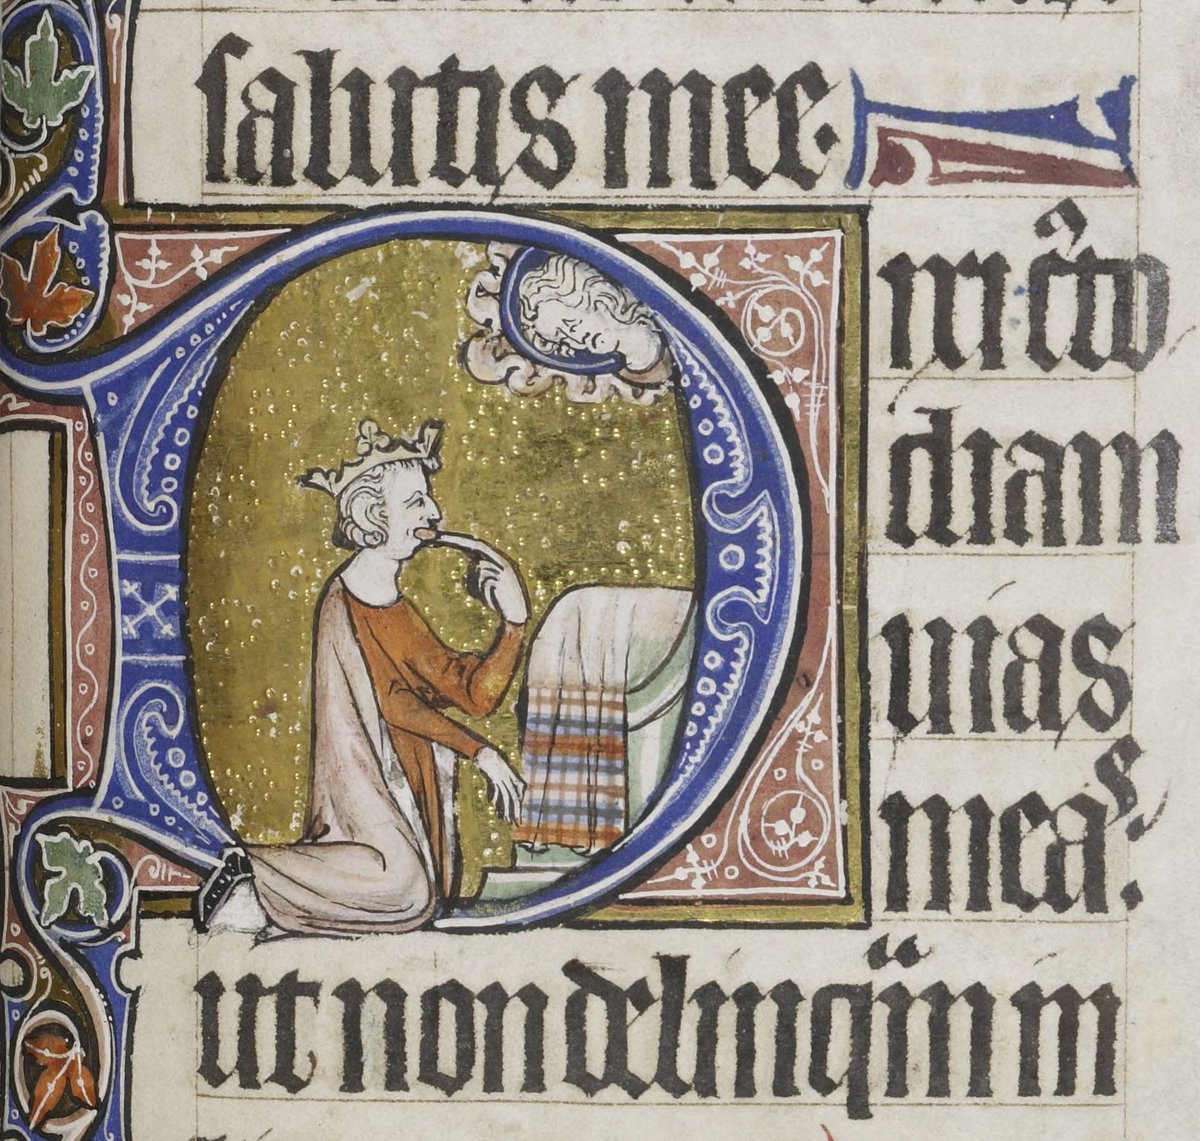 salutis mee.
Dixi cꝰto
diam
uias
meas.
ut non delinqͣm in